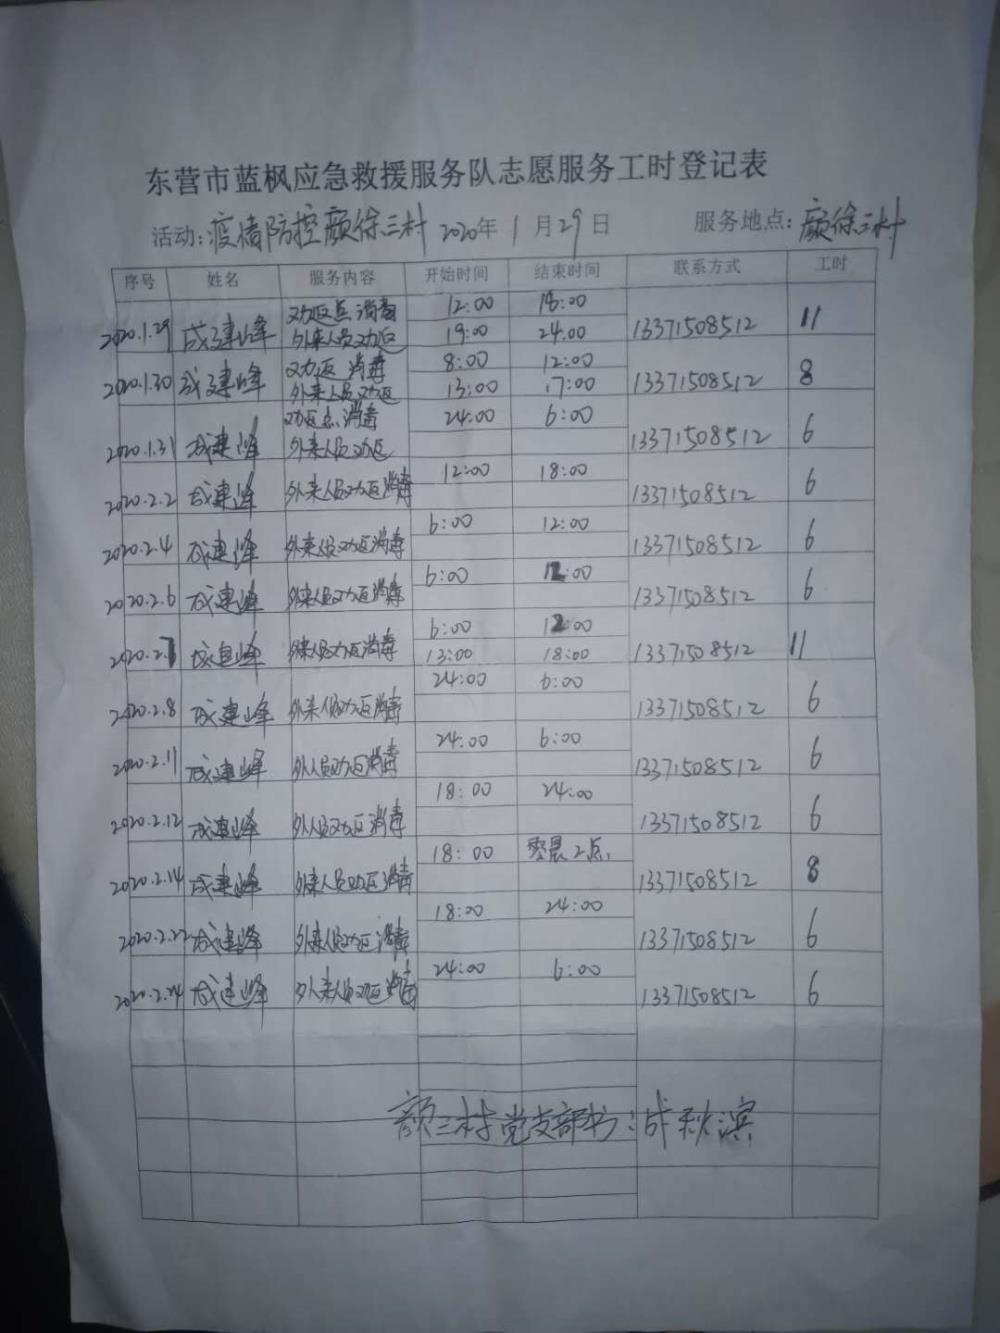 东营市蓝枫应急救援服务队志愿服务工时登记表
活动:疫情防控颜徐三村 2020年 1月29日 服务地点:颜徐三村
序号 姓名 服务内容 开始时间 结束时间 联系方式 工时
2020.1.29 成建峰 劝返点消毒 外来人员劝返 12:00 18:00 19:00 24:00 13371508512 11
2020.1.30 成建峰 劝返 消毒 外来人员劝返 8:00 12:00 13:00 17:00 13371508512 8
2020.1.31 成建峰 劝返点消毒 外来人员劝返 24:00 6:00 13371508512 6
2020.2.2 成建峰 外来人员劝返消毒 12:00 18:00 13371508512 6
2020.2.4 成建峰 外来人员劝返消毒 6:00 12:00 13371508512 6
2020.2.6 成建峰 外来人员劝返消毒 6:00 12:00 13371508512 6
2020.2.7 成建峰 外来人员劝返消毒 6:00 12:00 13:00 18:00 13371508512 11
2020.2.8 成建峰 外来人员劝返消毒 24:00 6:00 13371508512 6
2020.2.11 成建峰 外人员劝返消毒 24:00 6:00 13371508512 6
2020.2.12 成建峰 外人员劝返消毒 18:00 24:00 13371508512 6
2020.2.14 成建峰 外来人员劝返消毒 18:00 零晨2点 13371508512 8
2020.2.22 成建峰 外来人员劝返消毒 18:00 24:00 13371508512 6
2020.2.24 成建峰 外来人员劝返消毒 24:00 6:00 13371508512 6
颜三村党支部书:成秋滨